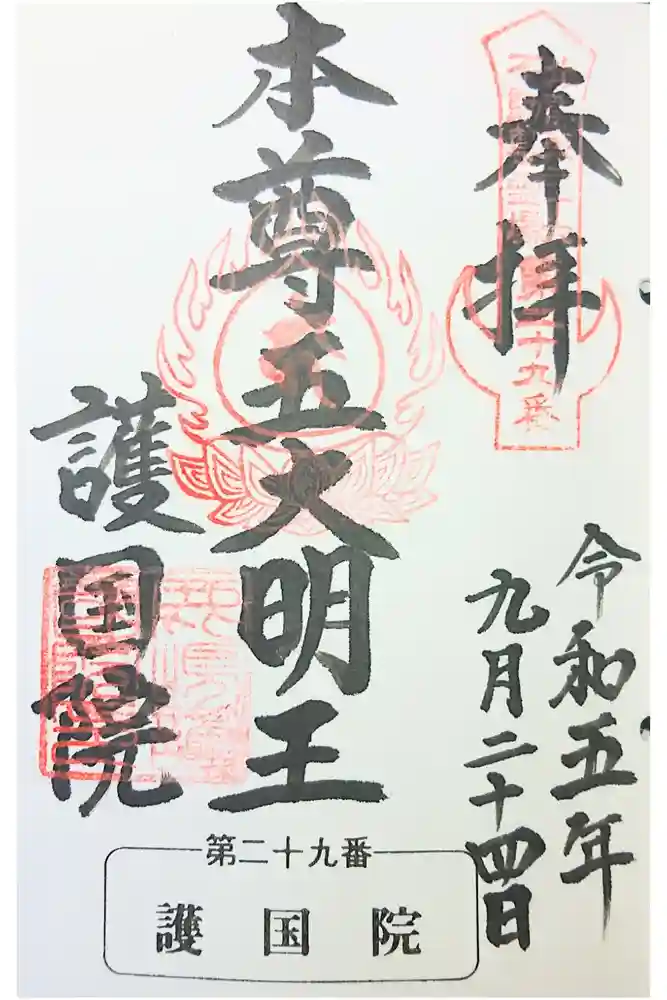 奉拝
令和五年
九月二十四日
本尊五大明王
護国院
十九番
第二十九番
護国院